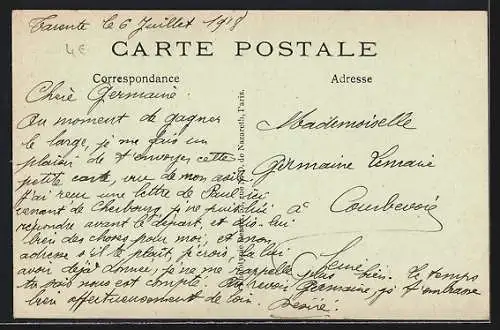 Tarente le 6 Juillet 1918
4€
CARTE POSTALE
Correspondance
Adresse
Chère Germaine.
Au moment de gagner
le large, je me fais un
plaisir de t'envoyer cette
petite carte, vue de mon
J'ai reçu une lettre de Paul
venant de Cherbourg, je ne puis lui
répondre avant le départ, et dis-lui
bien des choses pour moi, et mon
adresse s'il te plaît, je crois, la lui
avoir déjà donnée, je ne me rappelle plus bien. Le temps
de Nazareth, Paris.
Mademoiselle
Germaine Lemaire
à Courbevoie
Seine
nous est compté. Au revoir Germaine, je t'embrasse
bien affectueusement de loin. Désiré.